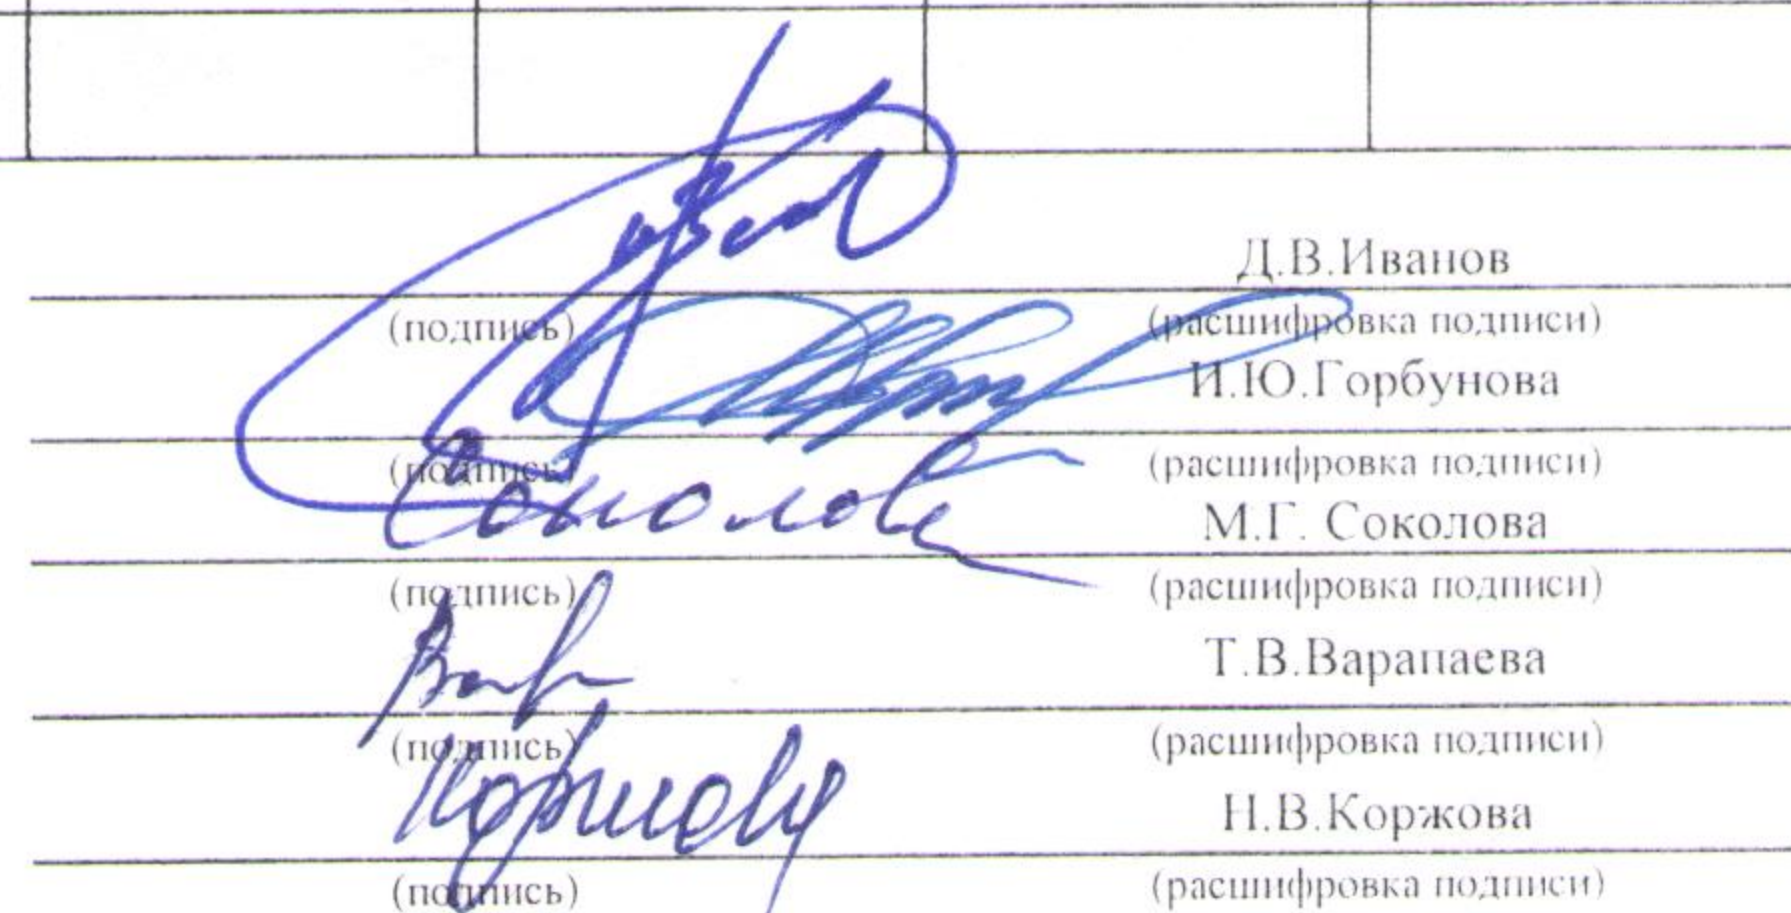 Д.В.Иванов
(подпись) (расшифровка подписи)
И.Ю.Горбунова
(подпись) (расшифровка подписи)
Соколова М.Г. Соколова
(подпись) (расшифровка подписи)
Вар Т.В.Варапаева
(подпись) (расшифровка подписи)
Коржова Н.В.Коржова
(подпись) (расшифровка подписи)